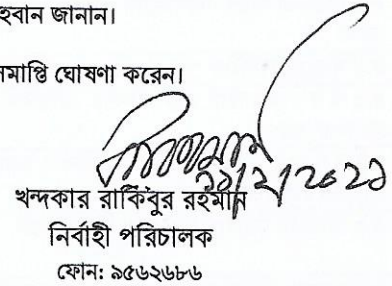 হবান জানান।
সমাপ্তি ঘোষণা করেন।
খন্দকার রাকিবুর রহমান
নির্বাহী পরিচালক
ফোন: ৯৫৬২৬৮৬